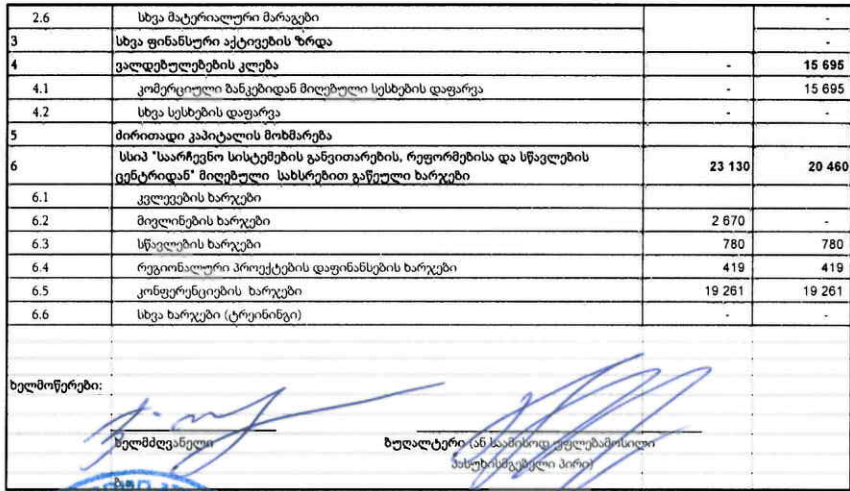 2.6 სხვა მატერიალური მარაგები -
3 სხვა ფინანსური აქტივების ზრდა -
4 ვალდებულებების კლება - 15 695
4.1 კომერციული ბანკებიდან მიღებული სესხების დაფარვა - 15 695
4.2 სხვა სესხების დაფარვა - -
5 ძირითადი კაპიტალის მოხმარება
6 სსიპ "საარჩევნო სისტემების განვითარების, რეფორმებისა და სწავლების
ცენტრიდან" მიღებული სახსრებით გაწეული ხარჯები 23 130 20 460
6.1 კვლევების ხარჯები
6.2 მივლინების ხარჯები 2 670 -
6.3 სწავლების ხარჯები 780 780
6.4 რეგიონალური პროექტების დაფინანსების ხარჯები 419 419
6.5 კონფერენციების ხარჯები 19 261 19 261
6.6 სხვა ხარჯები (ტრეინინგი) - -
ხელმოწერები:
ხელმძღვანელი ბუღალტერი (ან საამისოდ უფლებამოსილი
პასუხისმგებელი პირი)